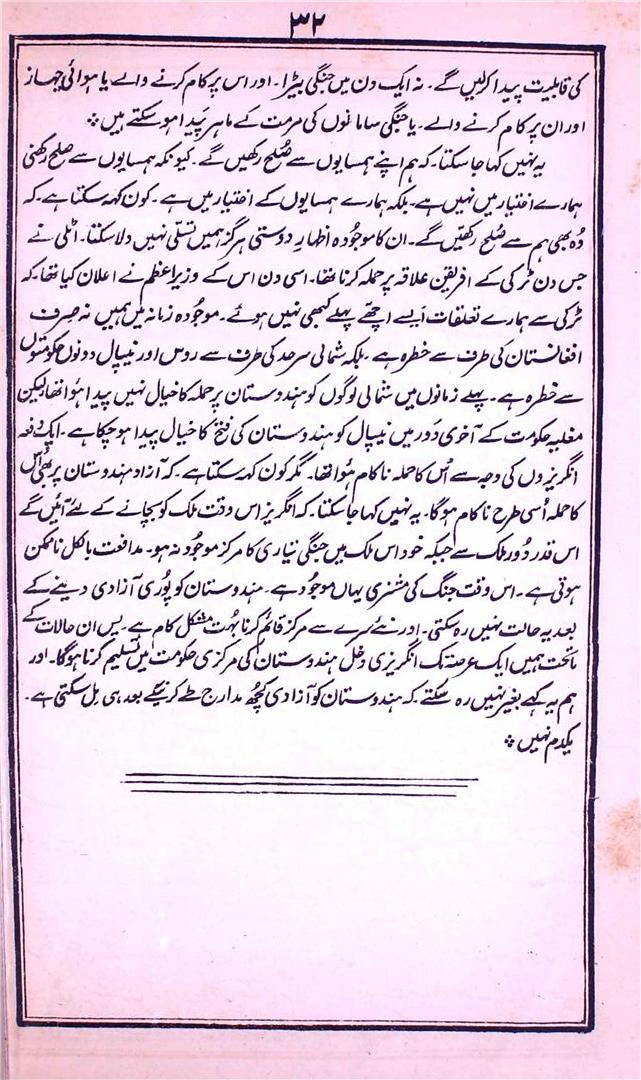 ۳۲
کی قابلیت پیدا کرلیں گے۔ نہ ایک دن میں جنگی بیڑا۔ اور اس پر کام کرنے والے یا ہوائی جہاز
اور ان پر کام کرنے والے۔ یا جنگی سامانوں کی مرمت کے ماہر پَیدا ہو سکتے ہیں ❖
یہ نہیں کہا جا سکتا۔ کہ ہم اپنے ہمسایوں سے صُلح رکھیں گے۔ کیونکہ ہمسایوں سے صلح رکھنی
ہمارے اختیار میں نہیں ہے۔ بلکہ ہمارے ہمسایوں کے اختیار میں ہے۔ کون کہہ سکتا ہے۔ کہ
وُہ بھی ہم سے صُلح رکھّیں گے۔ ان کا موجُودہ اظہارِ دوستی ہرگز ہمیں تسلّی نہیں دلا سکتا۔ اٹلی نے
جس دن ٹرکی کے افریقن علاقہ پر حملہ کرنا تھا۔ اسی دن اس کے وزیرِ اعظم نے اعلان کیا تھا۔ کہ
ٹرکی سے ہمارے تعلقات اَیسے اچھّے پہلے کبھی نہیں ہوئے۔ موجُودہ زمانہ میں ہمیں نہ صرف
افغانستان کی طرف سے خطرہ ہے۔ بلکہ شمالی سرحد کی طرف سے روس اور نیپال دونوں حکومتوں
سے خطرہ ہے۔ پہلے زمانوں میں شمالی لوگوں کو ہندوستان پر حملہ کا خیال نہیں پیدا ہؤا تھا لیکن
مغلیہ حکومت کے آخری دَور میں نیپال کو ہندوستان کی فتح کا خیال پیدا ہو چکا ہے۔ ایک دفعہ
انگریزوں کی وجہ سے اُس کا حملہ ناکام ہؤا تھا۔ مگر کون کہہ سکتا ہے۔ کہ آزاد ہندوستان پر بھی اُس
کا حملہ اُسی طرح ناکام ہوگا۔ یہ نہیں کہا جا سکتا۔ کہ انگریز اس وقت ملک کو بچانے کے لئے آئیں گے
اس قدر دُور ملک سے جبکہ خود اس ملک میں جنگی تیاری کا مرکز موجُود نہ ہو۔ مدافعت بالکل ناممکن
ہوتی ہے۔ اس وقت جنگ کی مشنری یہاں موجُود ہے۔ ہندوستان کو پُوری آزادی دینے کے
بعد یہ حالت نہیں رہ سکتی۔ اور نئے سرے سے مرکز قائم کرنا بہُت مشکل کام ہے۔ پس ان حالات کے
ماتحت ہمیں ایک عرصہ تک انگریزی دخل ہندوستان کی مرکزی حکومت میں تسلیم کرنا ہوگا۔ اور
ہم یہ کہے بغیر نہیں رہ سکتے۔ کہ ہندوستان کو آزادی کچُھ مدارج طے کرنیکے بعد ہی مِل سکتی ہے۔
یکدم نہیں ❖